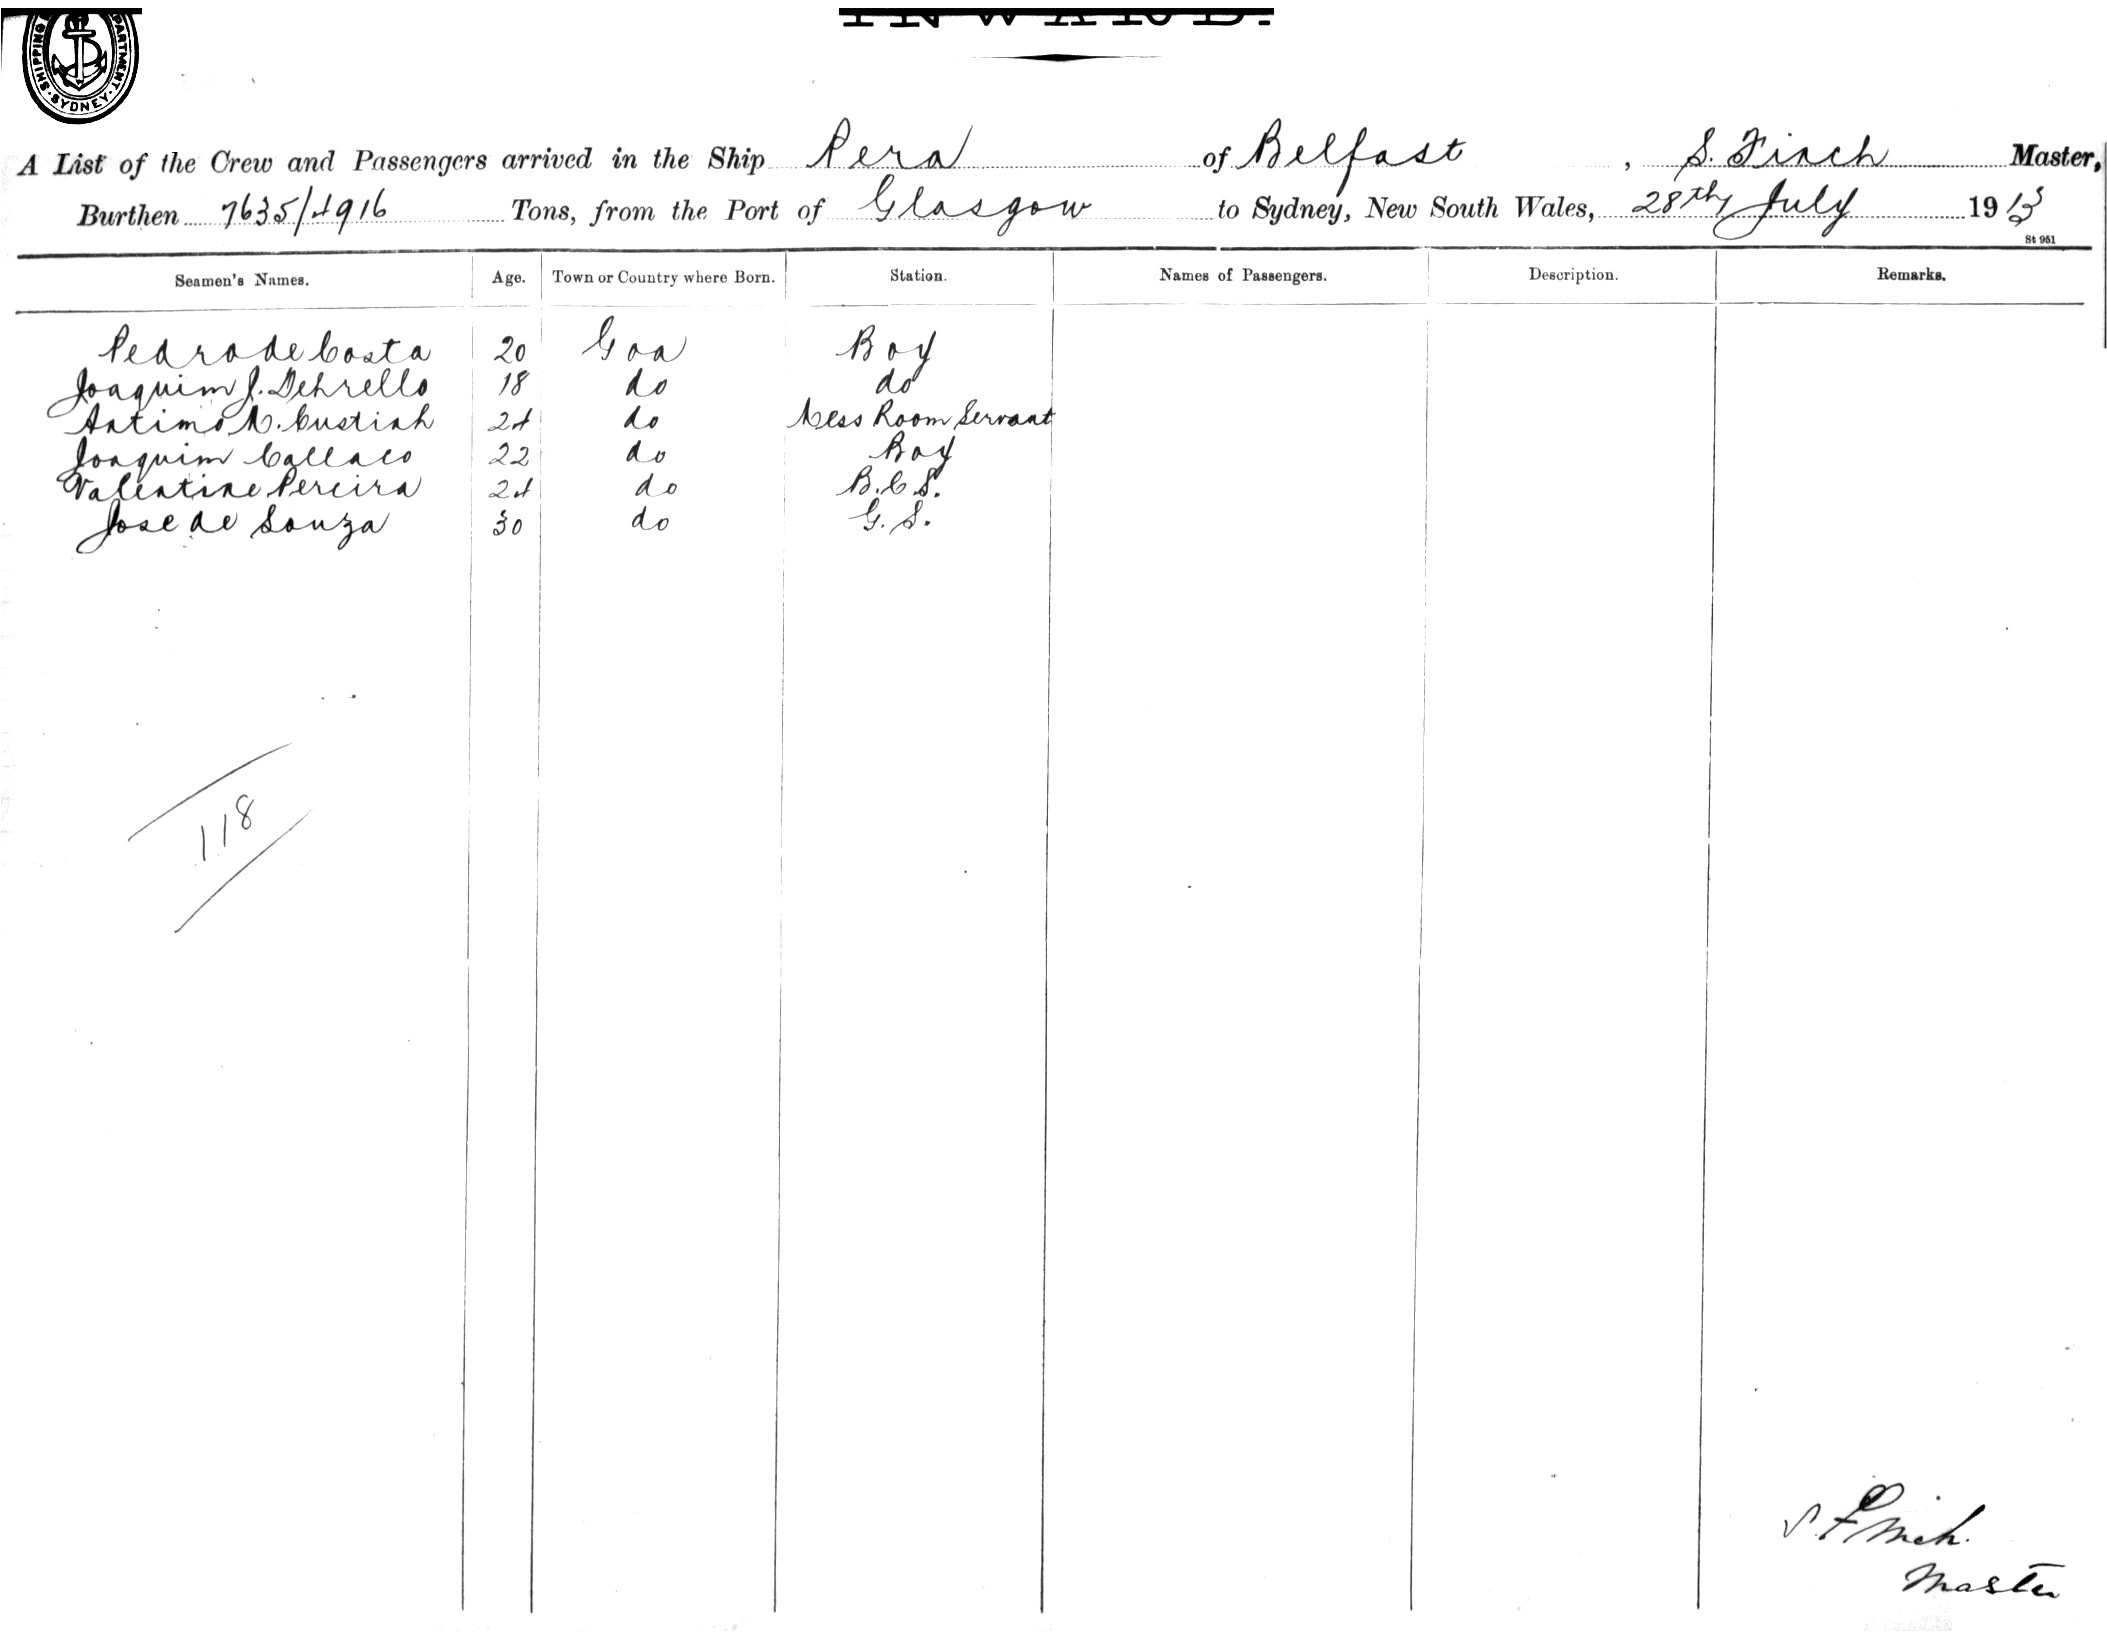 INWARD.
SHIPPING DEPARTMENT. SYDNEY.
A List of the Crew and Passengers arrived in the Ship Pera of Belfast, S. Finch Master,
Burthen 7635/4916 Tons, from the Port of Glasgow to Sydney, New South Wales, 28th July 1913
St 951
Seamen's Names. Age. Town or Country where Born. Station. Names of Passengers. Description. Remarks.
Pedro de Costa 20 Goa Boy
Joaquim J. 18 do do
Antimo M. Custiah 24 do Mess Room Servant
Joaquim Collaco 22 do Boy
Valentine Pereira 24 do B.C.S.
Jose de Souza 30 do G.S.
118
S Finch.
Master